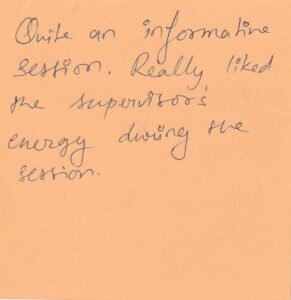 Quite an informative
session. Really liked
the supervisor's
energy during the
session.